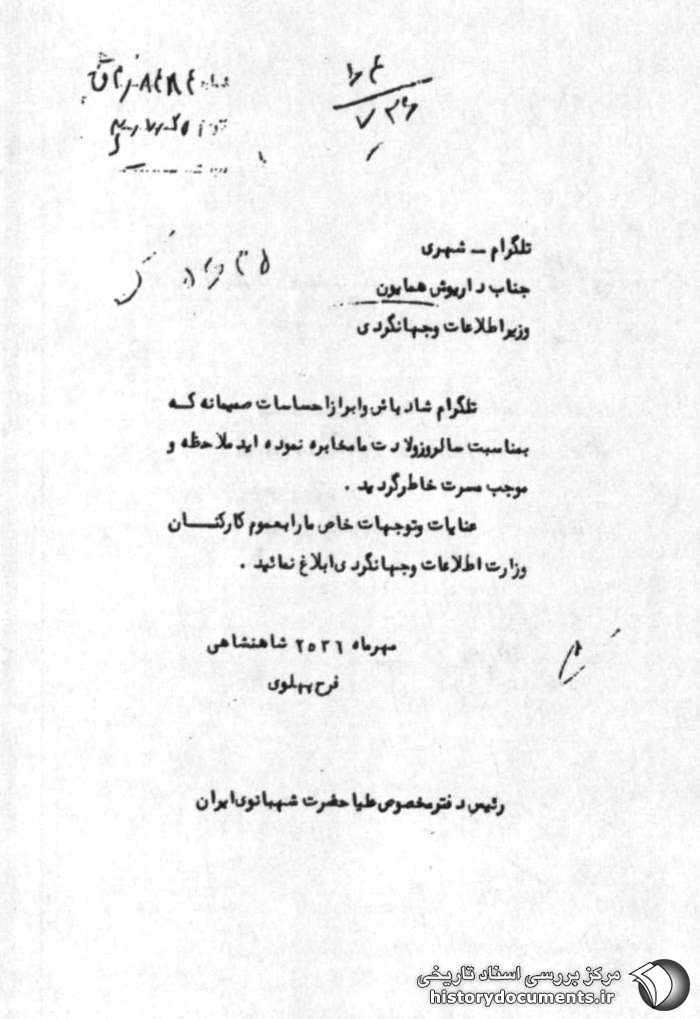 شماره
تلگرام ــ شهری
جناب داریوش همایون
وزیر اطلاعات و جهانگردی
تلگرام شادباش و ابراز احساسات صمیمانه که
بمناسبت سالروز ولادت ما مخابره نموده اید ملاحظه و
موجب مسرت خاطر گردید .
عنایات و توجهات خاص ما را بعموم کارکنـــان
وزارت اطلاعات و جهانگردی ابلاغ نمائید .
مهرماه ۲۵۳۶ شاهنشاهی
فرح پهلوی
رئیس دفتر مخصوص علیاحضرت شهبانوی ایران
مرکز بررسی اسناد تاریخی
historydocuments.ir